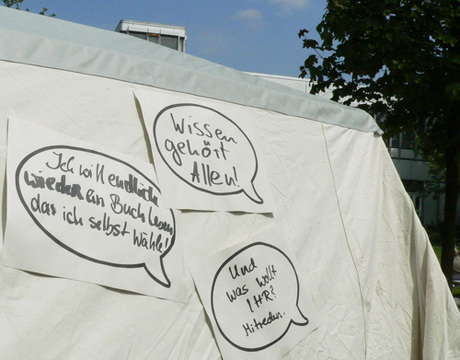 Wissen
gehört
Allen!
Ich will endlich
wieder ein Buch lesen
das ich selbst wähle!
Und
was wollt
IHR?
Mitreden.